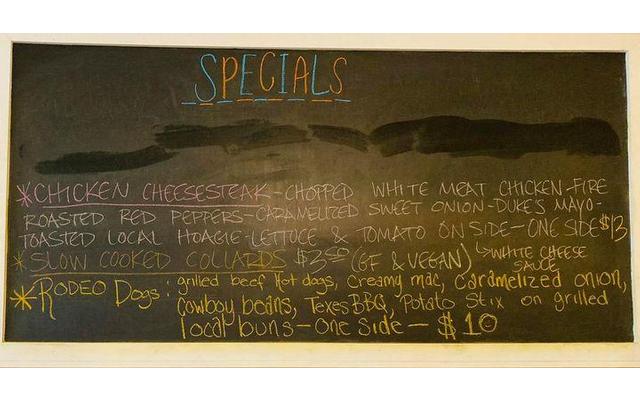 SPECIALS
*CHICKEN CHEESESTEAK-CHOPPED WHITE MEAT CHICKEN-FIRE
ROASTED RED PEPPERS-CARAMELIZED SWEET ONION-DUKE'S MAYO-
TOASTED LOCAL HOAGIE-LETTUCE & TOMATO ON SIDE-ONE SIDE $13
*SLOW COOKED COLLARDS $3.50 (GF & VEGAN) ↳WHITE CHEESE
SAUCE
*RODEO DOGS: grilled beef Hot dogs, creamy mac, caramelized onion,
cowboy beans, Texes BBQ, Potato Stix on grilled
local buns-one side-$10